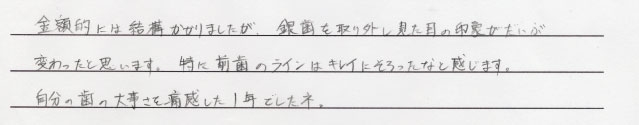 金額的には結構かかりましたが、銀歯を取り外し見た目の印象がだいぶ
変わったと思います。特に前歯のラインはキレイにそろったなと感じます。
自分の歯の大事さを痛感した1年でしたネ。